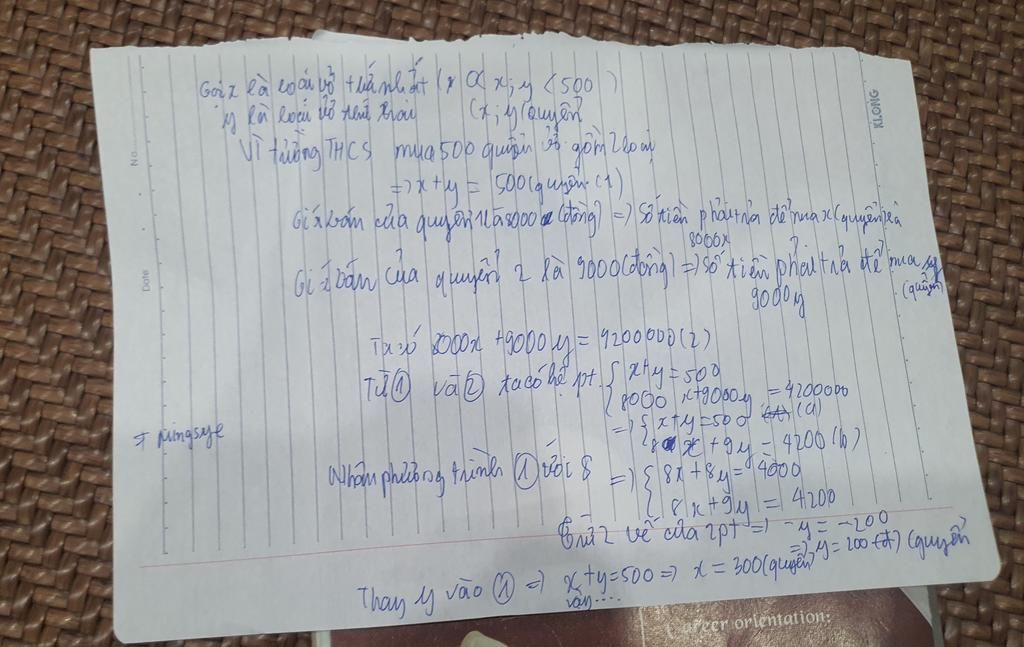 Gọi x là loại vở thứ nhất (x 0< x; y <500)
y là loại vở thứ hai (x; y quyển
Vì trường THCS mua 500 quyển vở gồm 2 loại
=> x+y = 500 (quyển (1)
Giá bán của quyển 1 là 8000 (đồng) => Số tiền phải trả để mua x (quyển) là
8000x
Giá bán của quyển 2 là 9000 (đồng) => Số tiền phải trả để mua y
(quyển)
9000y
Ta có 8000x +9000y = 4200000 (2)
Từ ① và ② ta có hệ pt { x+y = 500
8000 x+9000y = 4200000
=> { x+y = 500 (a)
8x + 9y = 4200 (b)
Nhân phương trình ① với 8 => { 8x + 8y = 4000
8x + 9y = 4200
Trừ 2 vế của 2pt => -y = -200
=> y = 200 (quyển
Thay y vào ① => x+y=500 => x = 300 (quyển)
vậy ....
No.
Date
KLONG
Career orientation: